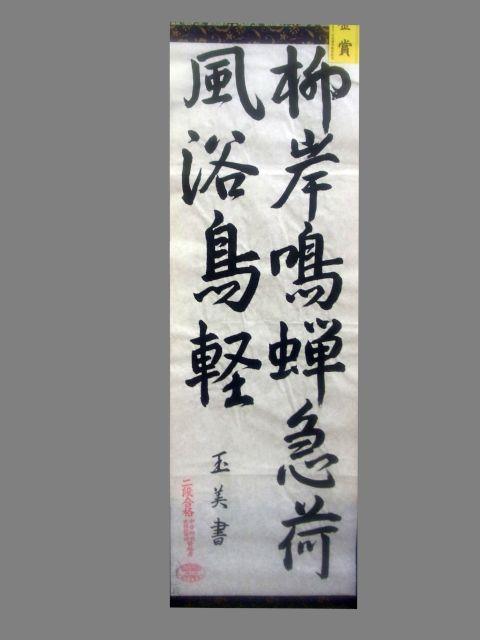 柳岸鳴蝉急荷
風浴鳥軽
玉美書
二段合格
賞